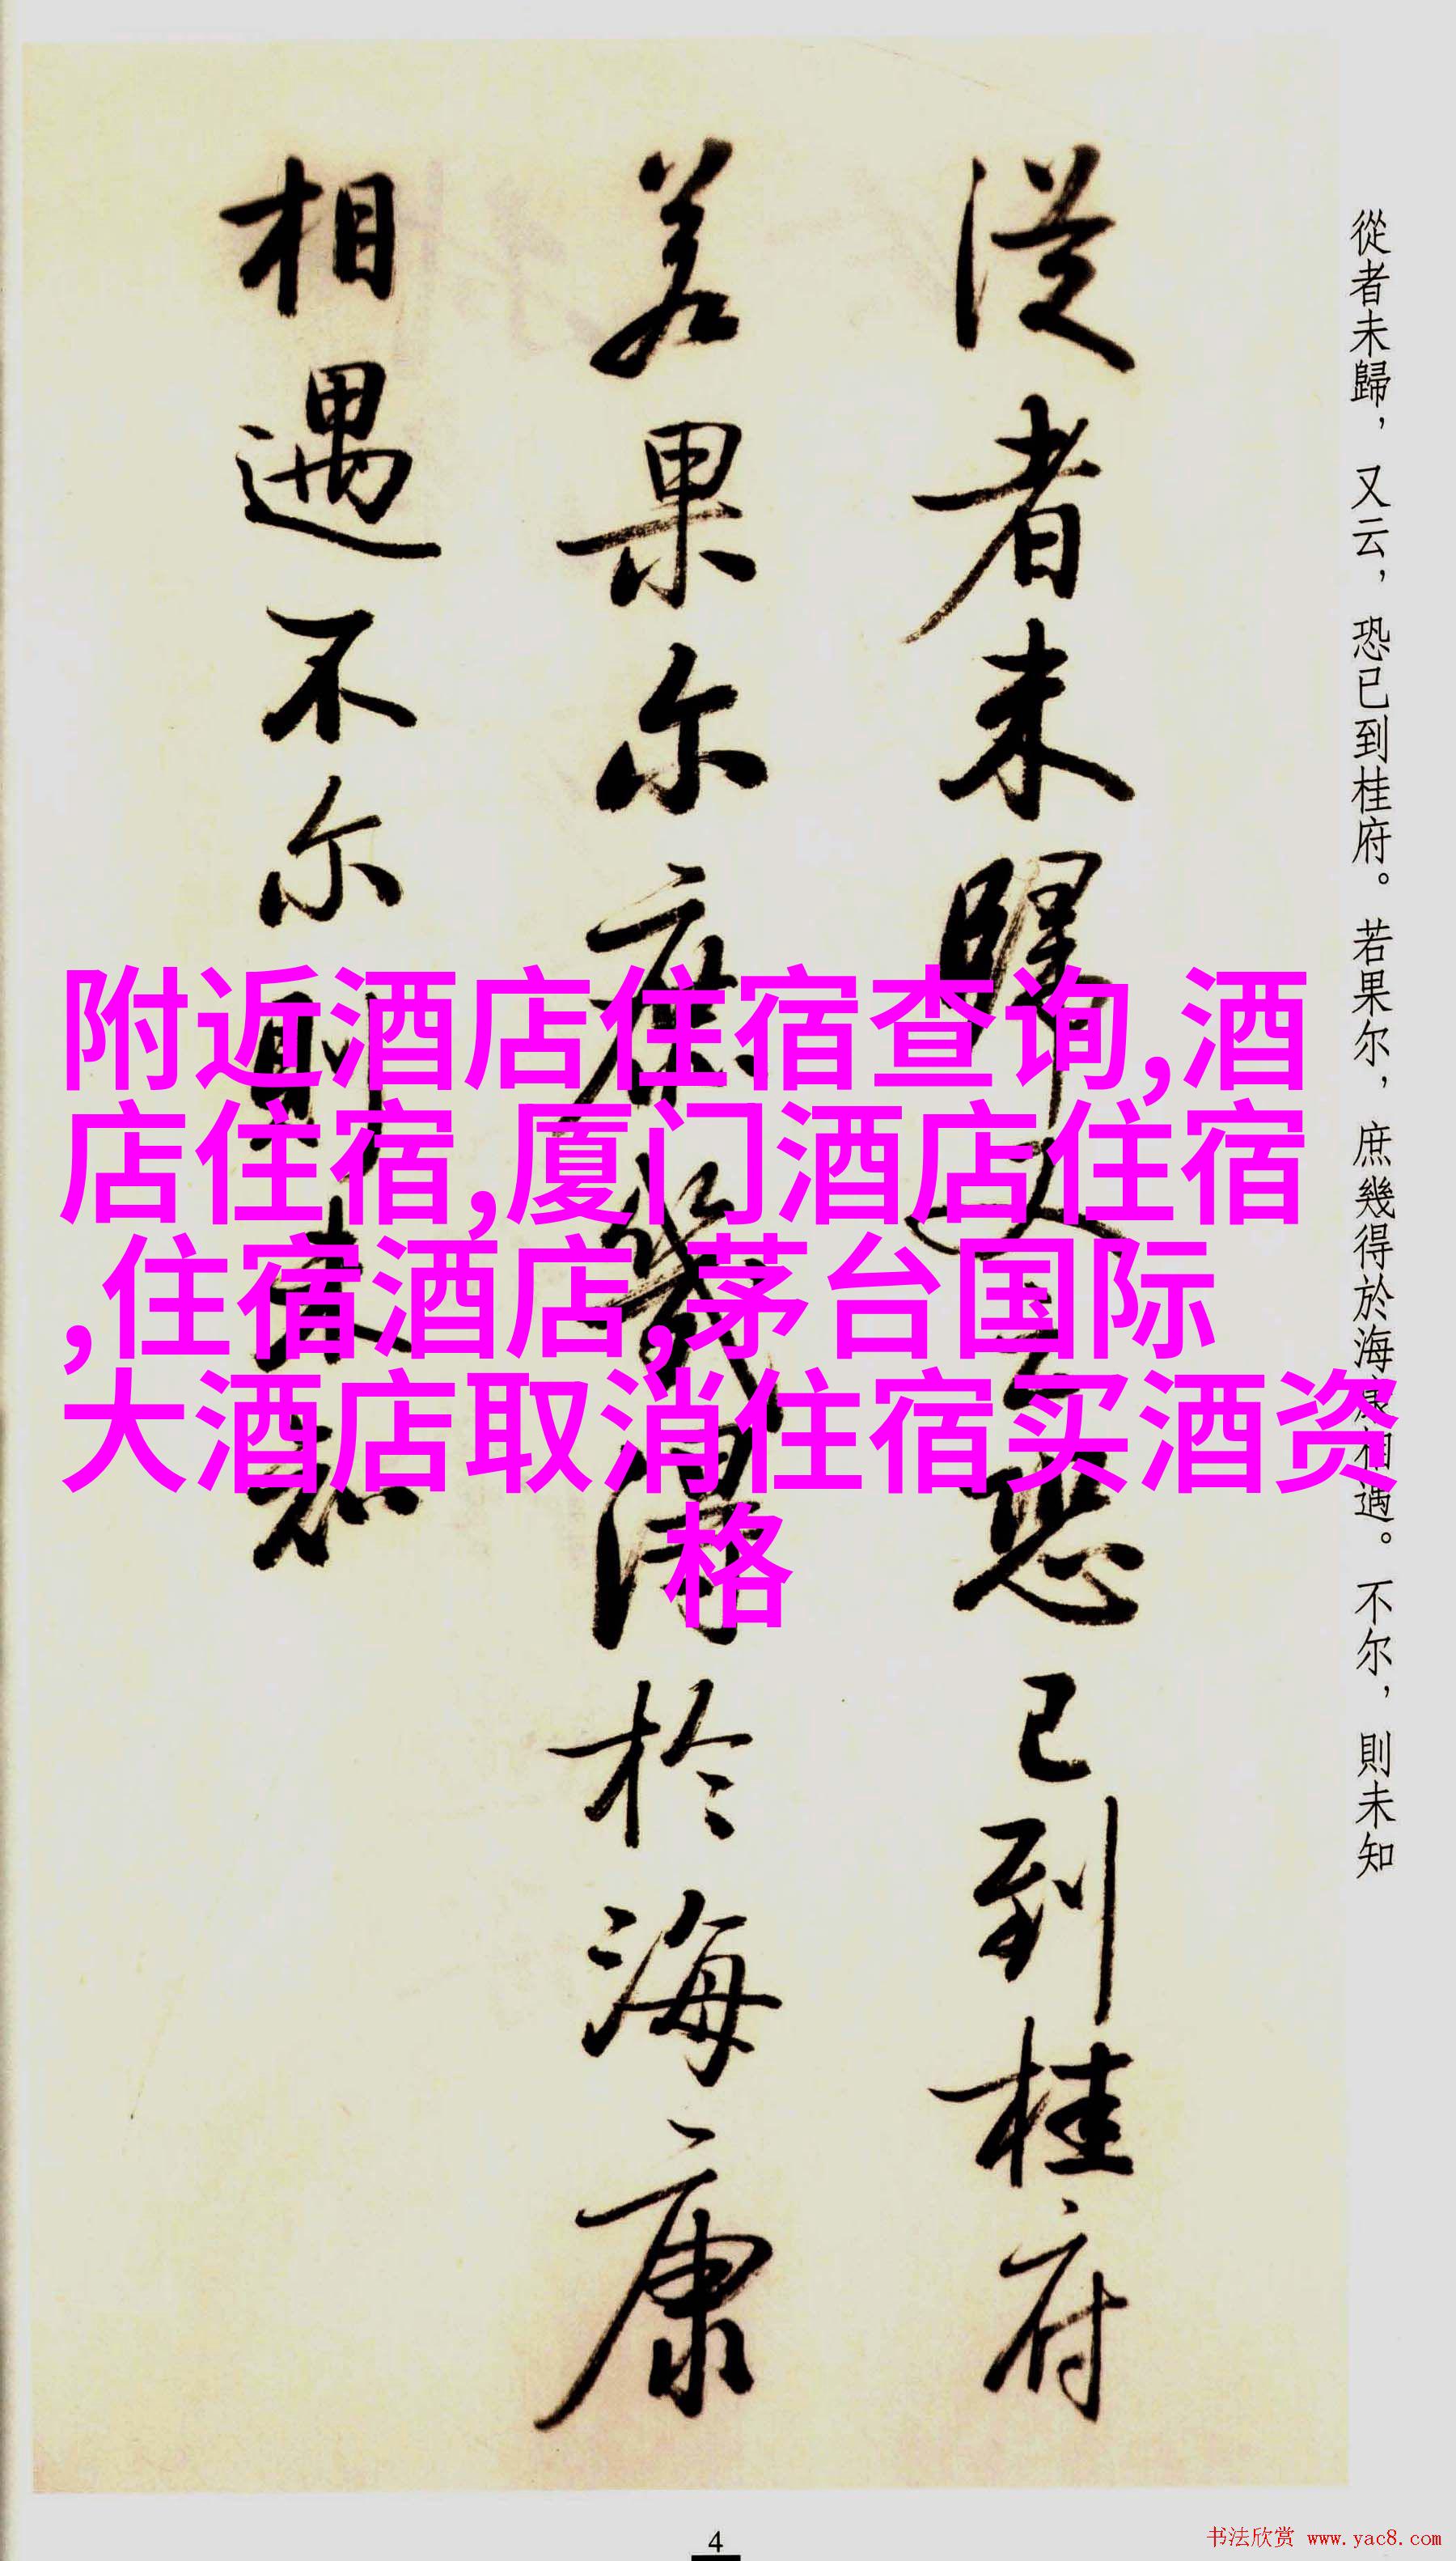 從者未歸，又云，恐已到桂府。若果尔，庶幾得於海康相遇。不尔，則未知
从者未歸又云恐已到桂府
若果尔庶幾得於海康
相遇不尔則未知
附近酒店住宿查询,酒
店住宿,厦门酒店住宿
,住宿酒店,茅台国际
大酒店取消住宿买酒资
格
4
书法欣赏 www.yac8.com